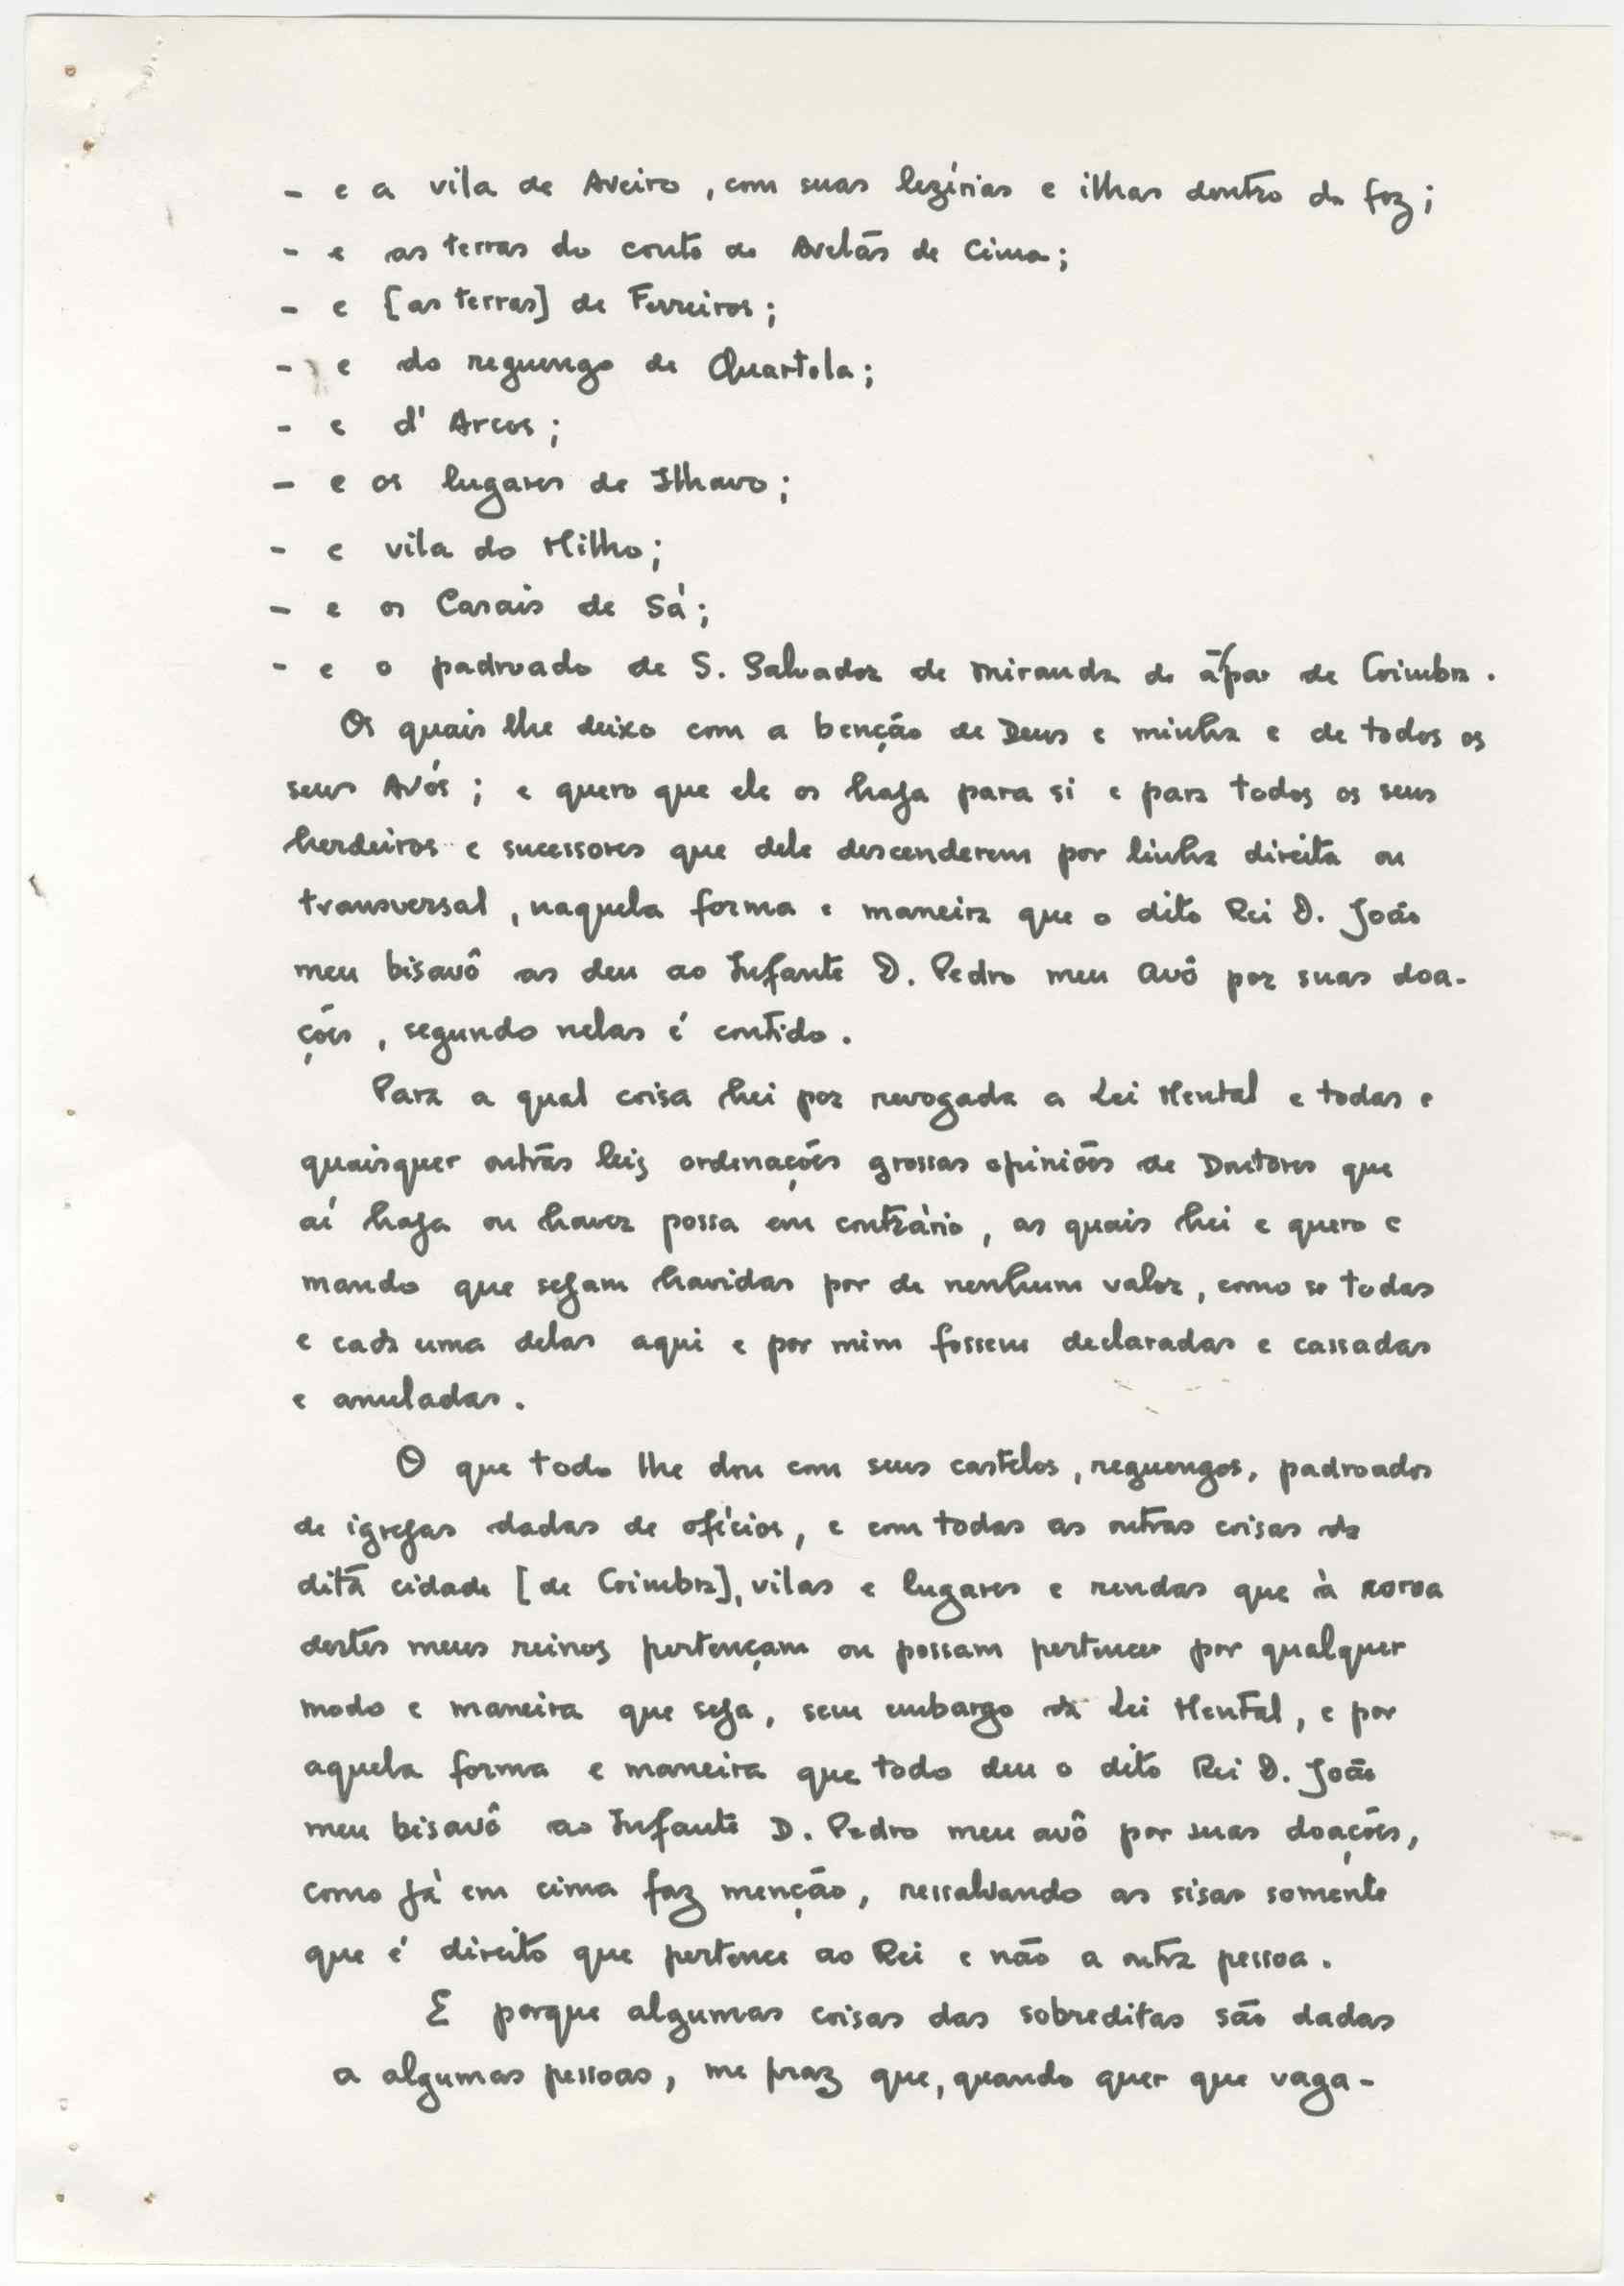 - e a vila de Aveiro, com suas lezírias e ilhas dentro da foz;
- e as terras do couto de Avelãs de Cima;
- e [as terras] de Ferreiros;
- e do reguengo de Quartela;
- e d'Arcos;
- e os lugares de Ílhavo;
- e vila do Milho;
- e os Casais de Sá;
- e o padroado de S. Salvador de Miranda de a/par de Coimbra.
Os quais lhe deixo com a benção de Deus e minha e de todos os
seus Avós; e quero que ele os haja para si e para todos os seus
herdeiros e sucessores que dele descenderem por linha direita ou
transversal, naquela forma e maneira que o dito Rei D. João
meu bisavô as deu ao Infante D. Pedro meu avô por suas doa-
ções, segundo nelas é contido.
Para a qual coisa hei por revogada a Lei Mental e todas e
quaisquer outras leis ordenações grossas opiniões de Doutores que
aí haja ou haver possa em contrário, as quais hei e quero e
mando que sejam havidas por de nenhum valor, como se todas
e cada uma delas aqui e por mim fossem declaradas e cassadas
e anuladas.
O que todo lhe dou com seus castelos, reguengos, padroados
de igrejas dadas de ofícios, e com todas as outras coisas da
dita cidade [de Coimbra], vilas e lugares e rendas que à coroa
destes meus reinos pertençam ou possam pertencer por qualquer
modo e maneira que seja, sem embargo da Lei Mental, e por
aquela forma e maneira que todo deu o dito Rei D. João
meu bisavô ao Infante D. Pedro meu avô por suas doações,
como já em cima faz menção, ressalvando as sisas somente
que é direito que pertence ao Rei e não a outra pessoa.
E porque algumas coisas das sobreditas são dadas
a algumas pessoas, me praz que, quando quer que vaga-